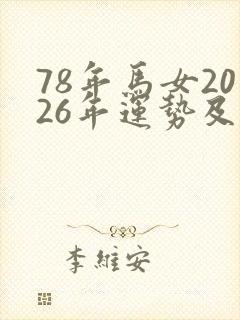 78年馬女20
26年運勢及
李維安